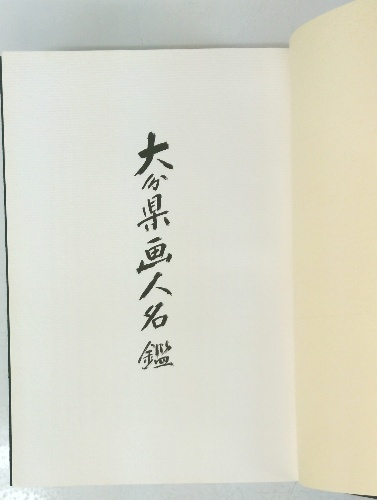 大分県画人名鑑